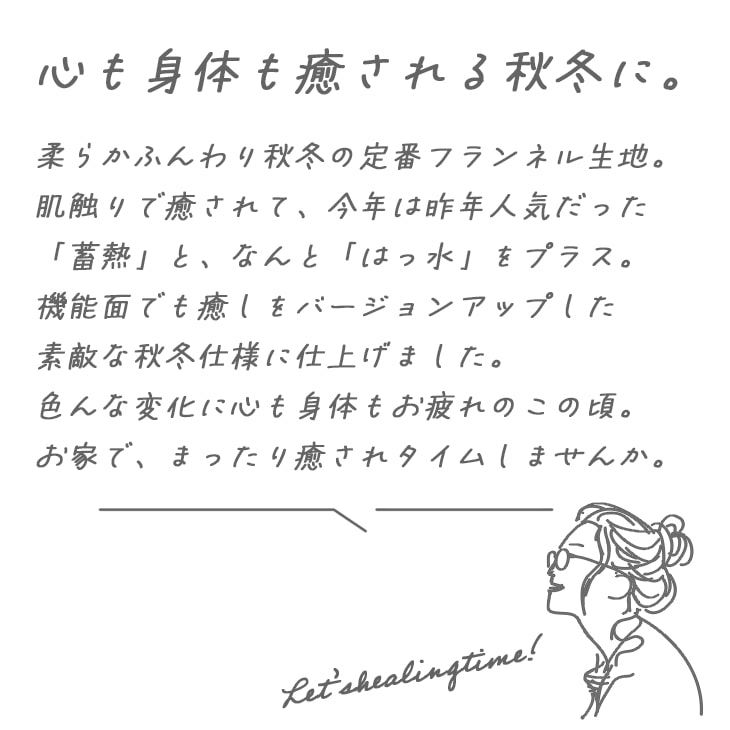 心も身体も癒される秋冬に。
柔らかふんわり秋冬の定番フランネル生地。
肌触りで癒されて、今年は昨年人気だった
「蓄熱」と、なんと「はっ水」をプラス。
機能面でも癒しをバージョンアップした
素敵な秋冬仕様に仕上げました。
色んな変化に心も身体もお疲れのこの頃。
お家で、まったり癒されタイムしませんか。
Let'shealingtime!